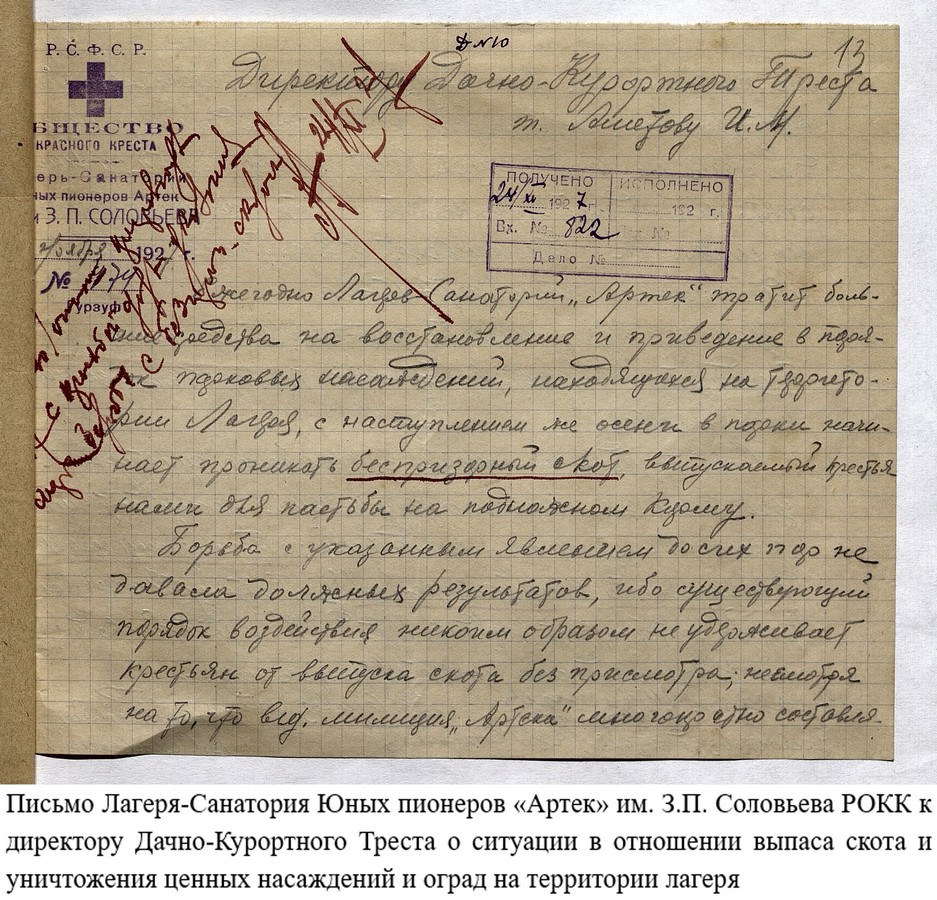 Д №10
13
Р. С. Ф. С. Р.
БЩЕСТВО
КРАСНОГО КРЕСТА
ерь-Санаторий
ных пионеров Артек
З. П. СОЛОВЬЕВА
ноября 192
№
урзуф
Директору Дачно-Курортного Треста
т. Аметову И. М.
ПОЛУЧЕНО ИСПОЛНЕНО
24/XI 1927 г. 192 г.
Вх. № 822 №
Дело №
24/XI
с
жегодно Лагерь Санаторий „Артек" тратит боль-
средства на восстановление и приведение в поря-
док парковых насаждений, находящихся на территo-
рии Лагеря, с наступлением же осени в парки начи-
нает проникать беспризорный скот, выпускаемый крестья
нами для пастьбы на подножном корму.
Борьба с указанным явлением до сих пор не
давала должных результатов, ибо существующий
порядок воздействия никоим образом не удерживает
крестьян от выпуска скота без присмотра; несмотря
на то, что вед. милиция „Артека" многократно составля-
Письмо Лагеря-Санатория Юных пионеров «Артек» им. З.П. Соловьева РОКК к
директору Дачно-Курортного Треста о ситуации в отношении выпаса скота и
уничтожения ценных насаждений и оград на территории лагеря